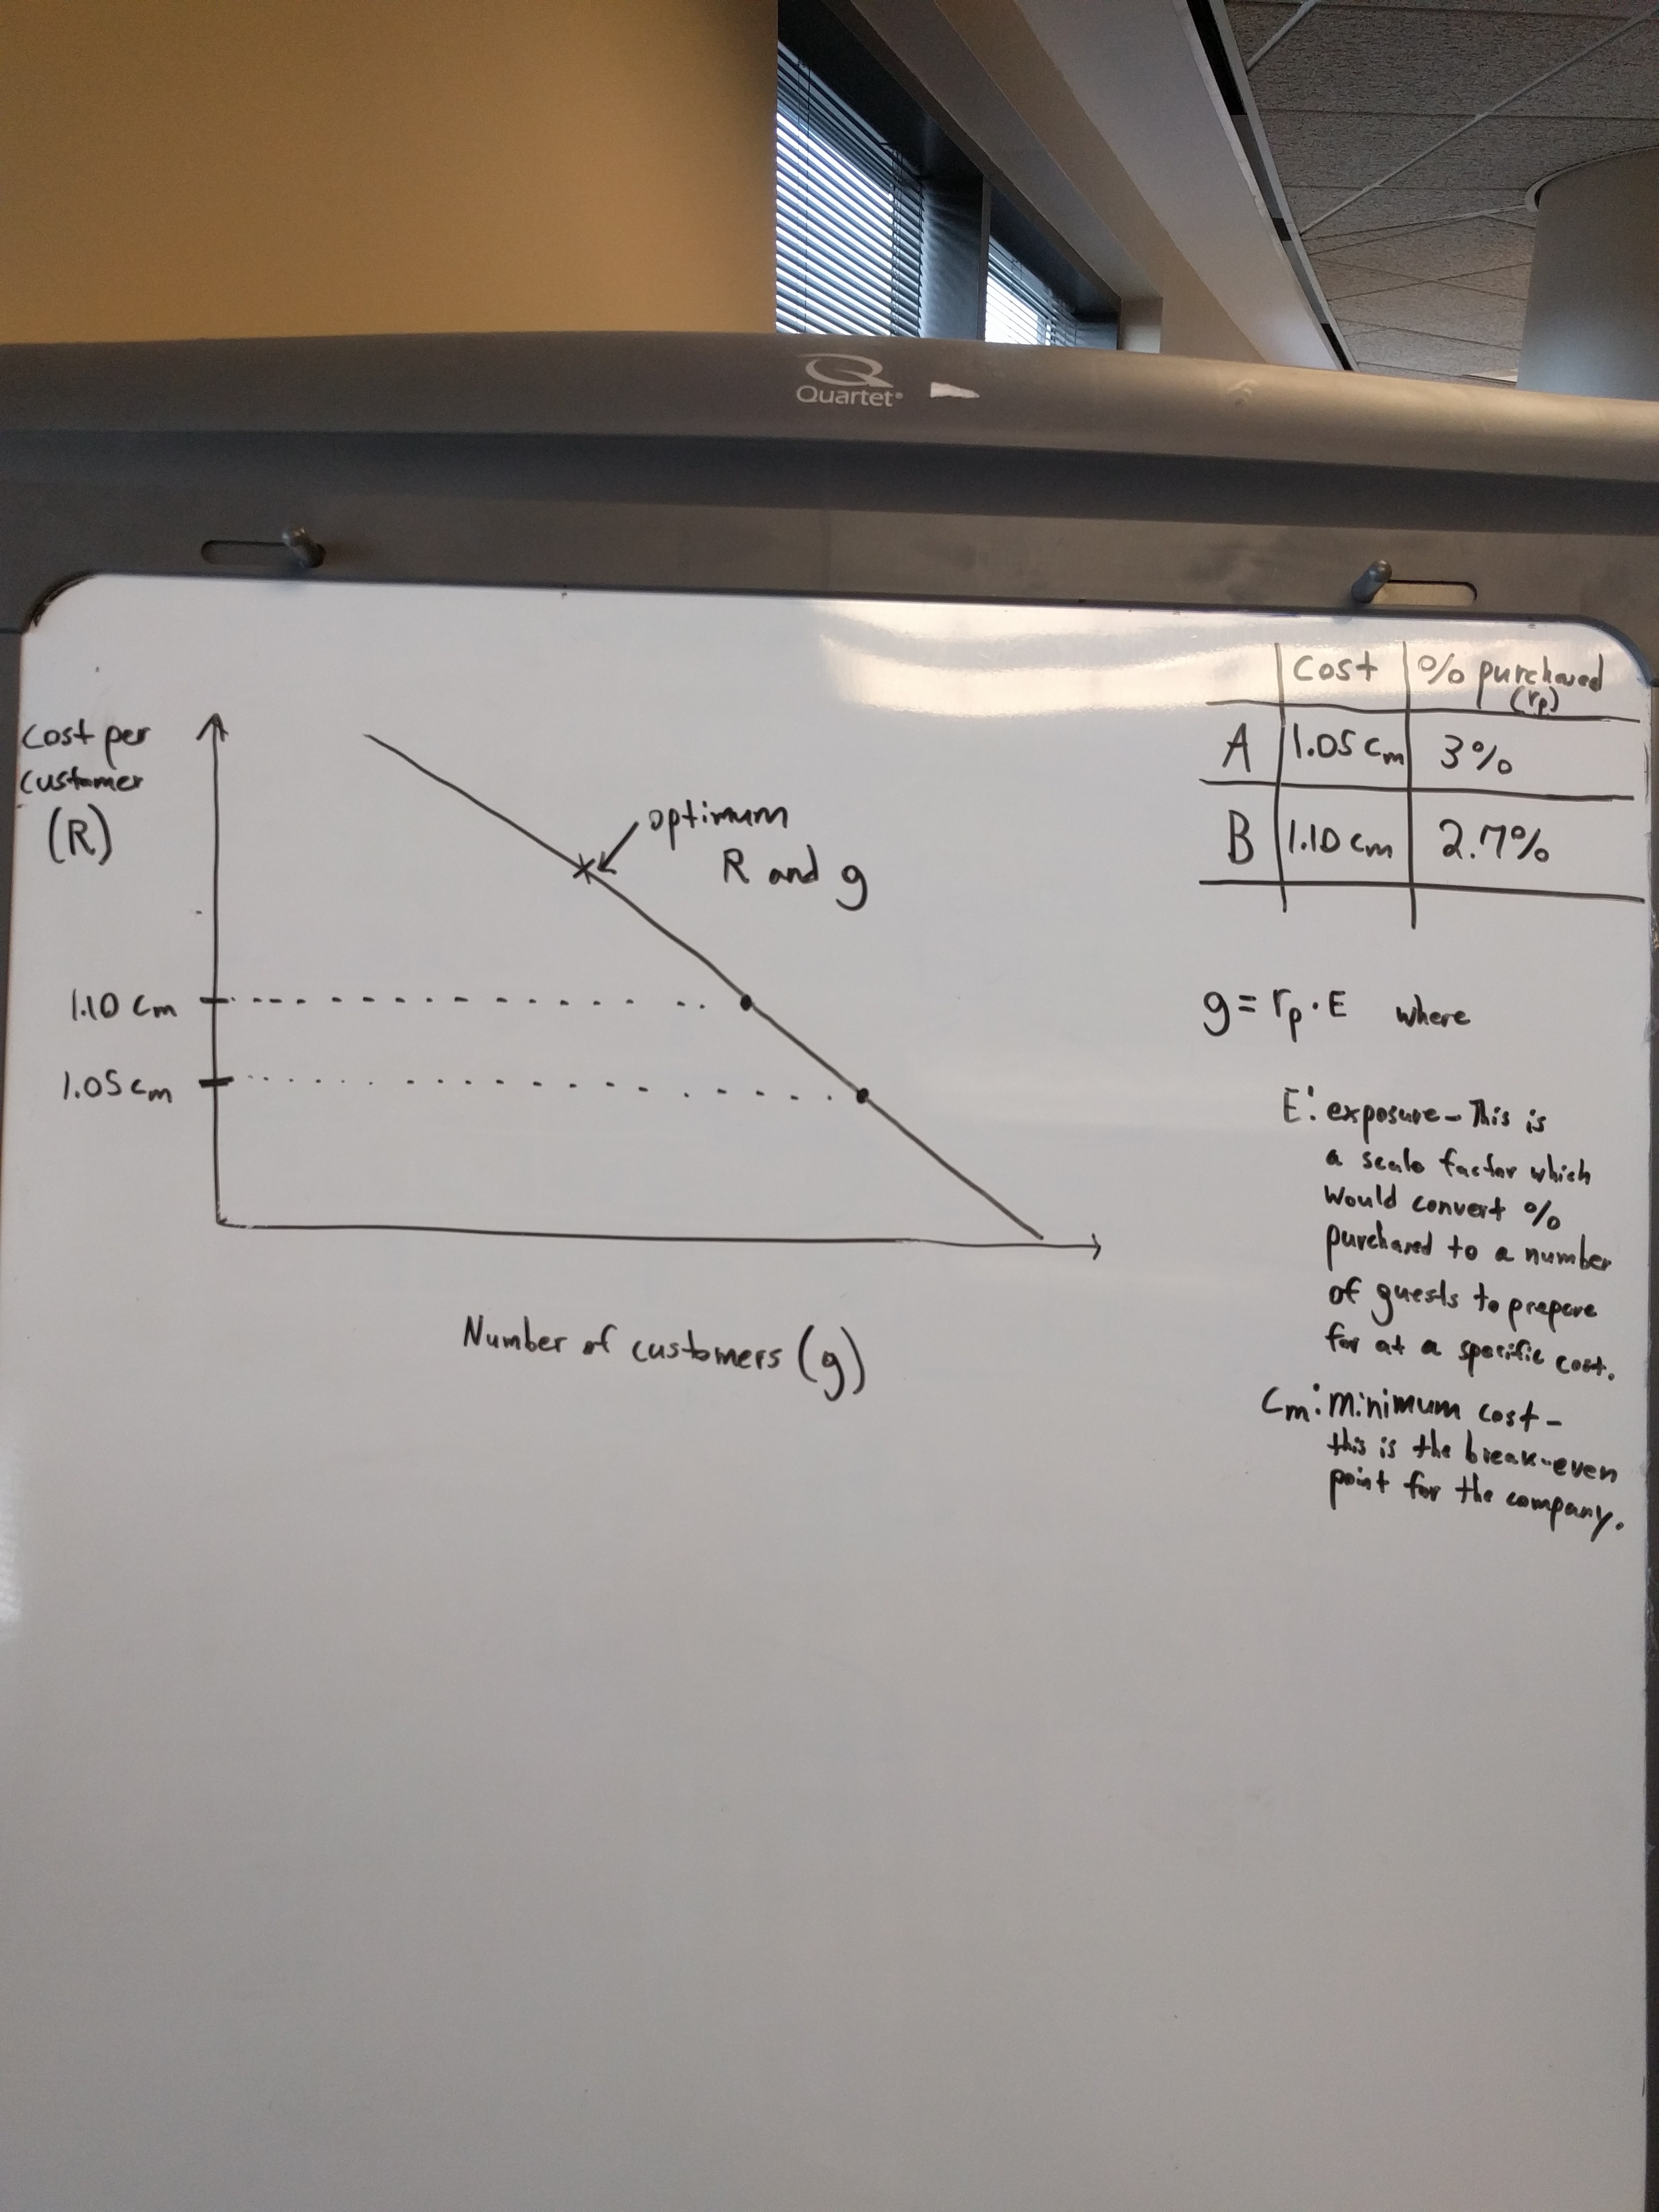 Quartet
Cost per
customer
(R)
optimum
R and g
1.10 Cm
1.05 Cm
Number of customers (g)
Cost % purchased
(rp)
A 1.05 Cm 3%
B 1.10 Cm 2.7%
g = rp · E where
E: exposure - This is
a scale factor which
would convert %
purchased to a number
of guests to prepare
for at a specific cost.
Cm: Minimum cost -
this is the break-even
point for the company.